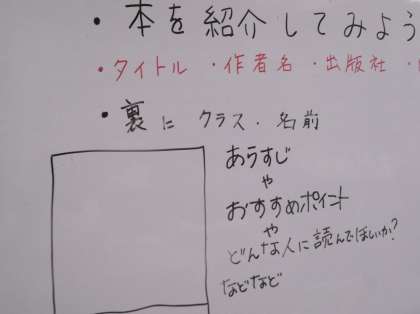 ・本を紹介してみよう
・タイトル ・作者名 ・出版社 ・
・裏に クラス・名前
あらすじ
や
おすすめポイント
や
どんな人に読んでほしいか?
などなど